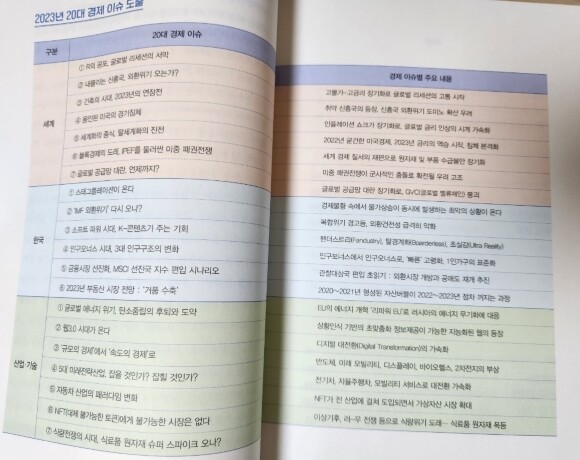 2023년 20대 경제 이슈 도출
구분
20대 경제 이슈
세계
① R의 공포, 글로벌 리세션의 서막
② 내몰리는 신흥국, 외환위기 오는가?
③ 긴축의 시대, 2023년의 연장전
④ 움인된 미국의 경기침체
⑤ 세계화의 종식, 탈세계화의 진전
⑥ 블록경제의 도래, IPEF를 둘러싼 미중 패권전쟁
⑦ 글로벌 공급망 대란, 언제까지?
한국
① 스태그플레이션이 온다
② 'IMF 외환위기' 다시 오나?
③ 소프트 파워 시대, K-콘텐츠가 주는 기회
④ 인구오너스 시대, 3대 인구구조의 변화
⑤ 금융시장 선진화, MSCI 선진국 지수 편입 시나리오
⑥ 2023년 부동산 시장 전망 : '거품 수축'
산업·기술
① 글로벌 에너지 위기, 탄소중립의 후퇴와 도약
② 웹3.0 시대가 온다
③ '규모의 경제'에서 '속도의 경제'로
④ 5대 미래전략산업, 잡을 것인가? 잡힐 것인가?
⑤ 자동차 산업의 패러다임 변화
⑥ NFT(대체 불가능한 토큰)에게 불가능한 시장은 없다
⑦ 식량전쟁의 시대, 식료품 원자재 슈퍼 스파이크 오나?
경제 이슈별 주요 내용
고물가-고금리 장기화로 글로벌 리세션의 고통 시작
취약 신흥국의 등장, 신흥국 외환위기 도미노 확산 우려
인플레이션 쇼크가 장기화, 글로벌 금리 인상의 시계 가속화
2022년 굳건한 미국경제, 2023년 금리의 역습 시작, 침체 본격화
세계 경제 질서의 재편으로 원자재 및 부품 수급불안 장기화
미중 패권전쟁이 군사적인 충돌로 확전될 우려 고조
글로벌 공급망 대란 장기화로, GVC(글로벌 밸류체인) 붕괴
경제불황 속에서 물가상승이 동시에 발생하는 최악의 상황이 온다
복합위기 경고등, 외환건전성 급격히 악화
팬더스트리(Fandustry), 탈경계화(Boarderless), 초실감(Ultra Reality)
인구보너스에서 인구오너스로, '빠른' 고령화, 1인가구의 표준화
관찰대상국 편입 초읽기 : 외환시장 개방과 공매도 재개 추진
2020~2021년 형성된 자산버블이 2022~2023년 점차 꺼지는 과정
EU의 에너지 개혁 '리파워 EU'로 러시아의 에너지 무기화에 대응
상황인식 기반의 초맞춤화 정보제공이 가능한 지능화된 웹의 등장
디지털 대전환(Digital Transformation)의 가속화
반도체, 미래 모빌리티, 디스플레이, 바이오헬스, 2차전지의 부상
전기차, 자율주행차, 모빌리티 서비스로 대전환 가속화
NFT가 전 산업에 걸쳐 도입되면서 가상자산 시장 확대
이상기후, 러-우 전쟁 등으로 식량위기 도래… 식료품 원자재 폭등